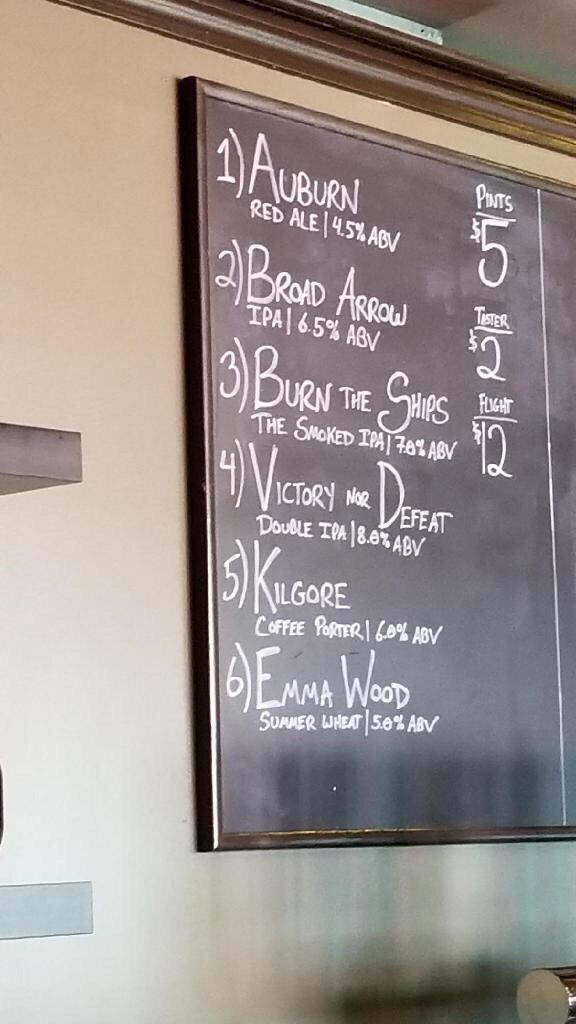 1) AUBURN
RED ALE | 4.5% ABV
2) BROAD ARROW
IPA | 6.5% ABV
3) BURN THE SHIPS
THE SMOKED IPA | 7.0% ABV
4) VICTORY NOR DEFEAT
DOUBLE IPA | 8.0% ABV
5) KILGORE
COFFEE PORTER | 6.0% ABV
6) EMMA WOOD
SUMMER WHEAT | 5.0% ABV
PINTS
$5
TASTER
$2
FLIGHT
$12